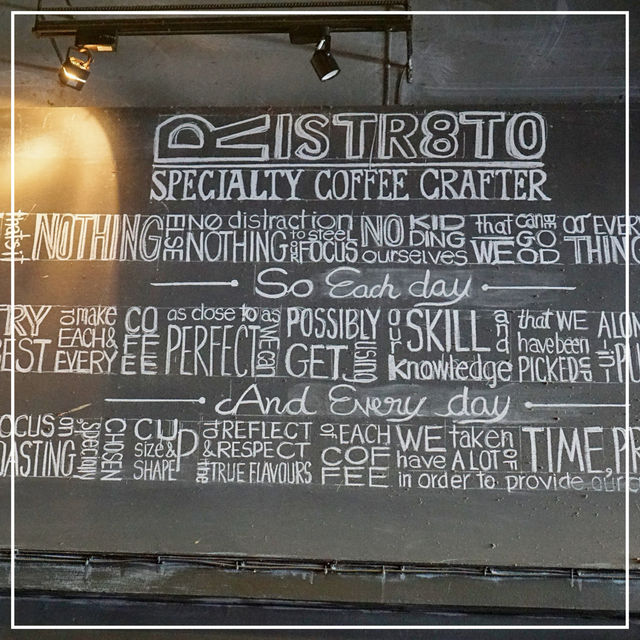 RISTR8TO
SPECIALTY COFFEE CRAFTER
that's it NOTHING ELSE NO distraction NOTHING to steel our FOCUS NO KIDDING ourselves that WE can be GOOD at EVER THING
So Each day
TRY BEST to make EACH & EVERY COFFEE as close to PERFECT as WE can POSSIBLY GET USING our SKILL and knowledge that WE have been PICKED up ALON PU
And Every day
OCUS on OASTING specially CHOSEN CUP size & SHAPE to REFLECT & RESPECT the TRUE FLAVOURS of EACH COFFEE WE have taken A LOT OF TIME, PR in order to provide our